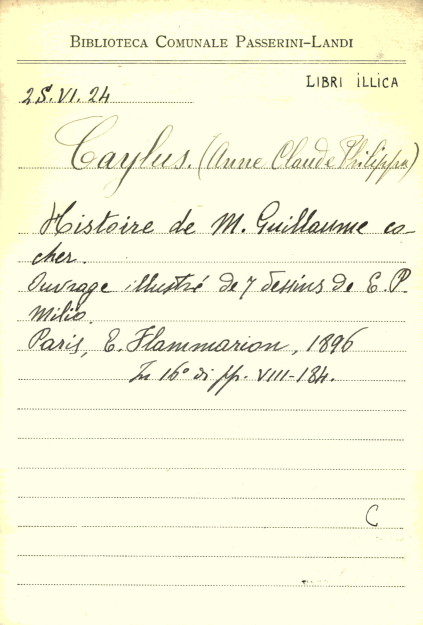 BIBLIOTECA COMUNALE PASSERINI-LANDI
LIBRI ILLICA
25.VI.24
Caylus. (Anne Claude Philippe)
Histoire de M. Guillaume co-
cher.
Ouvrage illustré de 7 dessins de E. P.
Milio.
Paris, E. Flammarion, 1896
In 16° di pp. VIII-184.
C